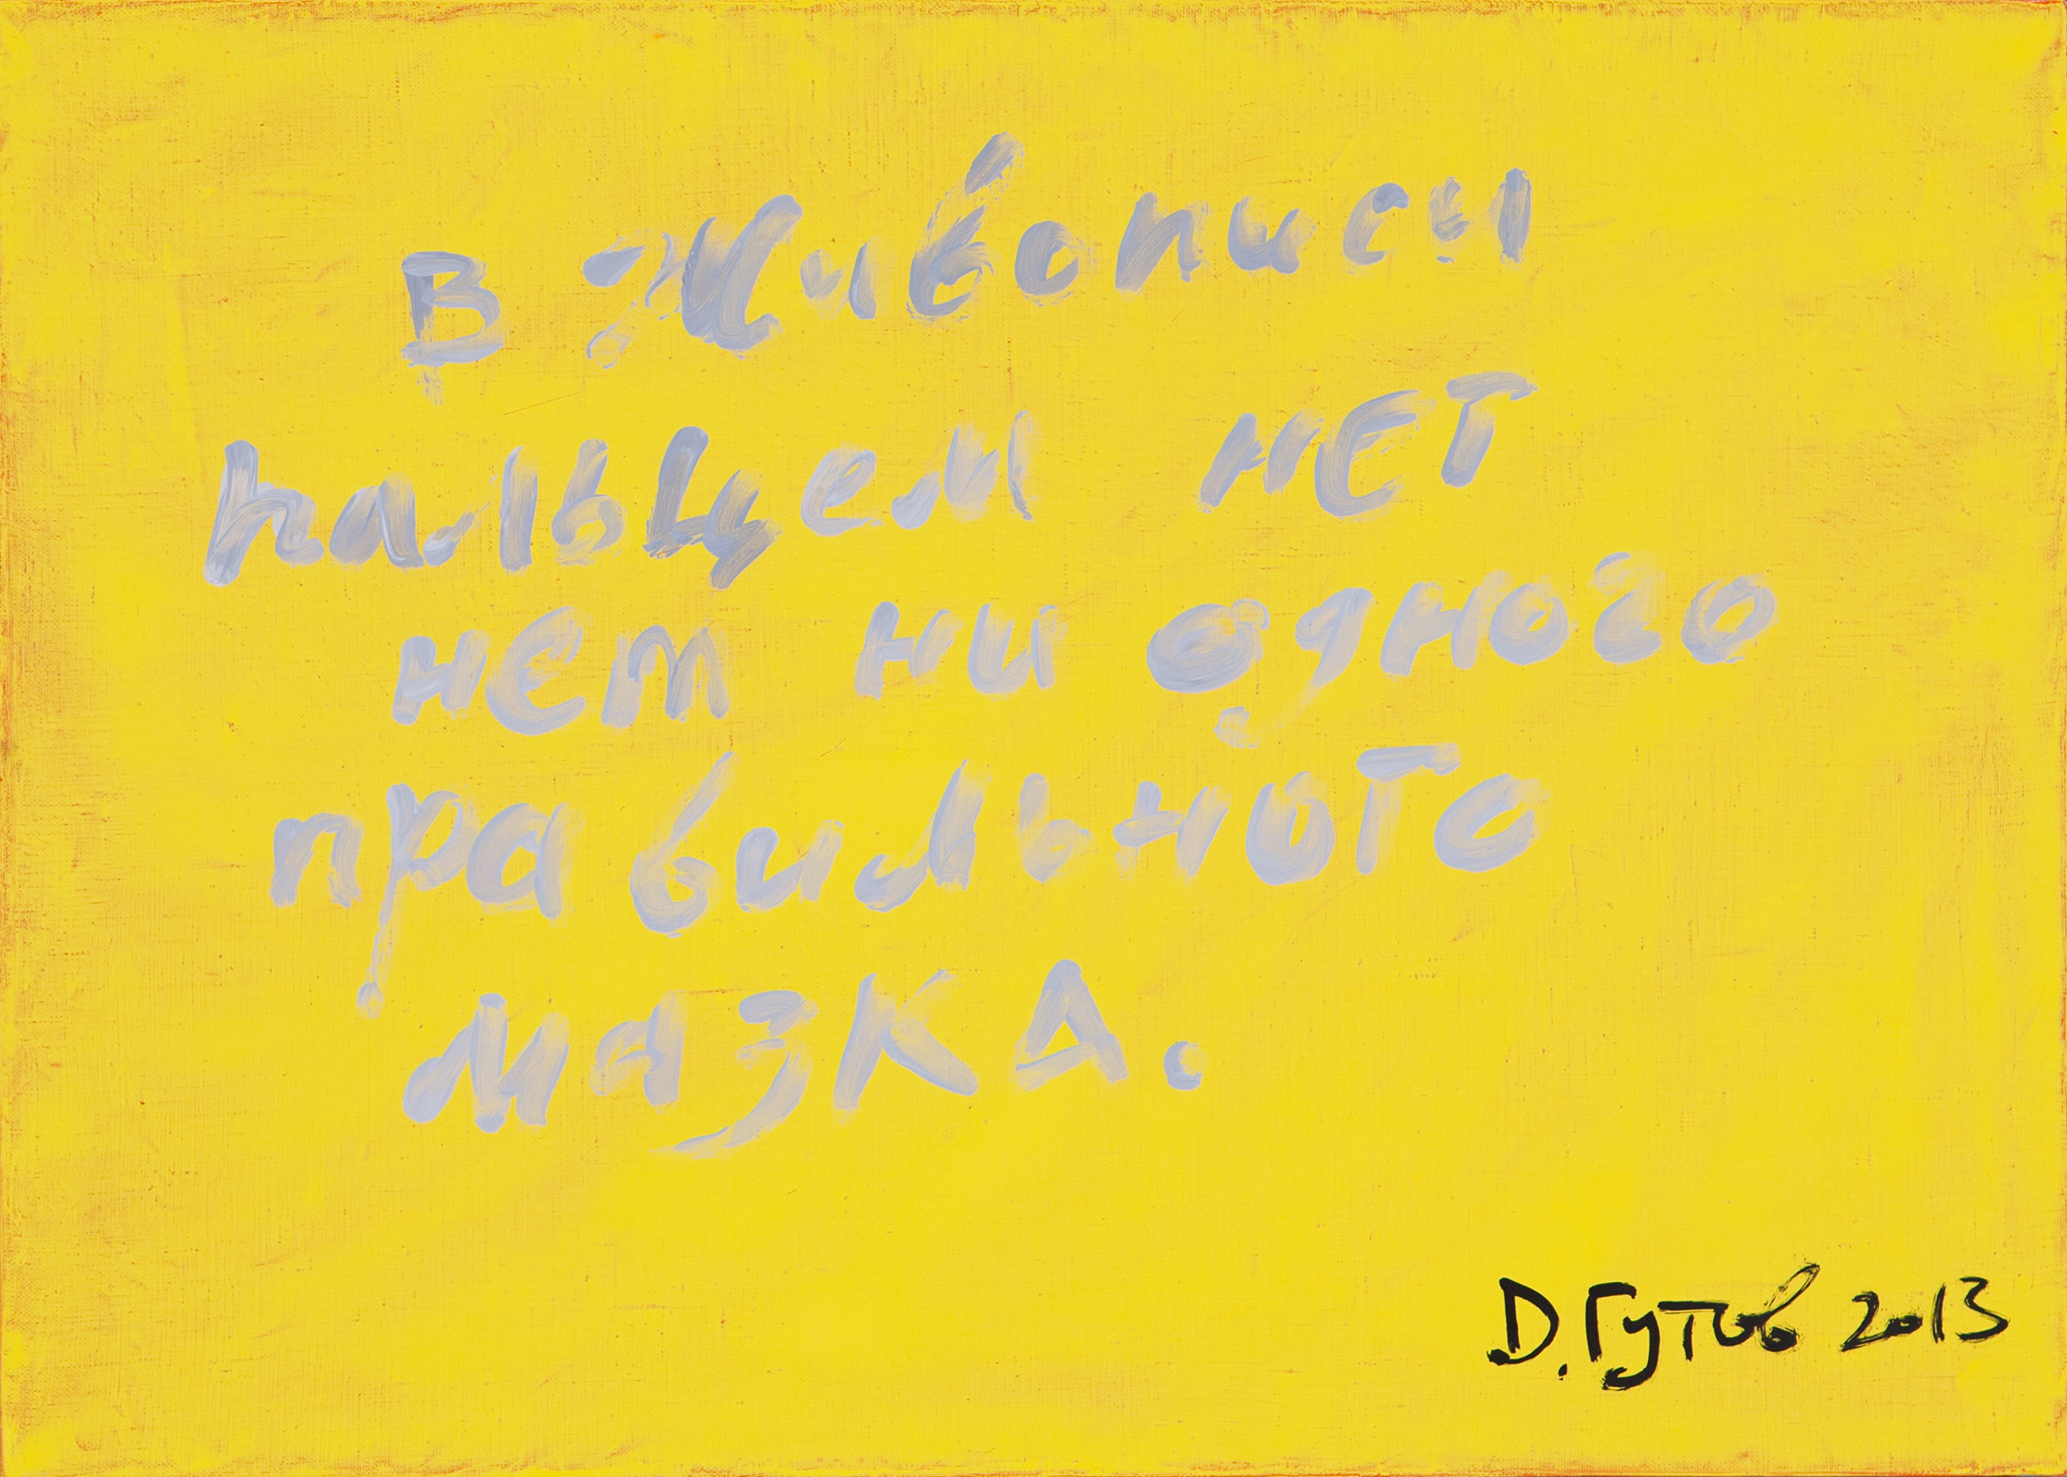 В живописи
пальцем нет
нет ни одного
правильного
мазка.
Д. Гутов 2013